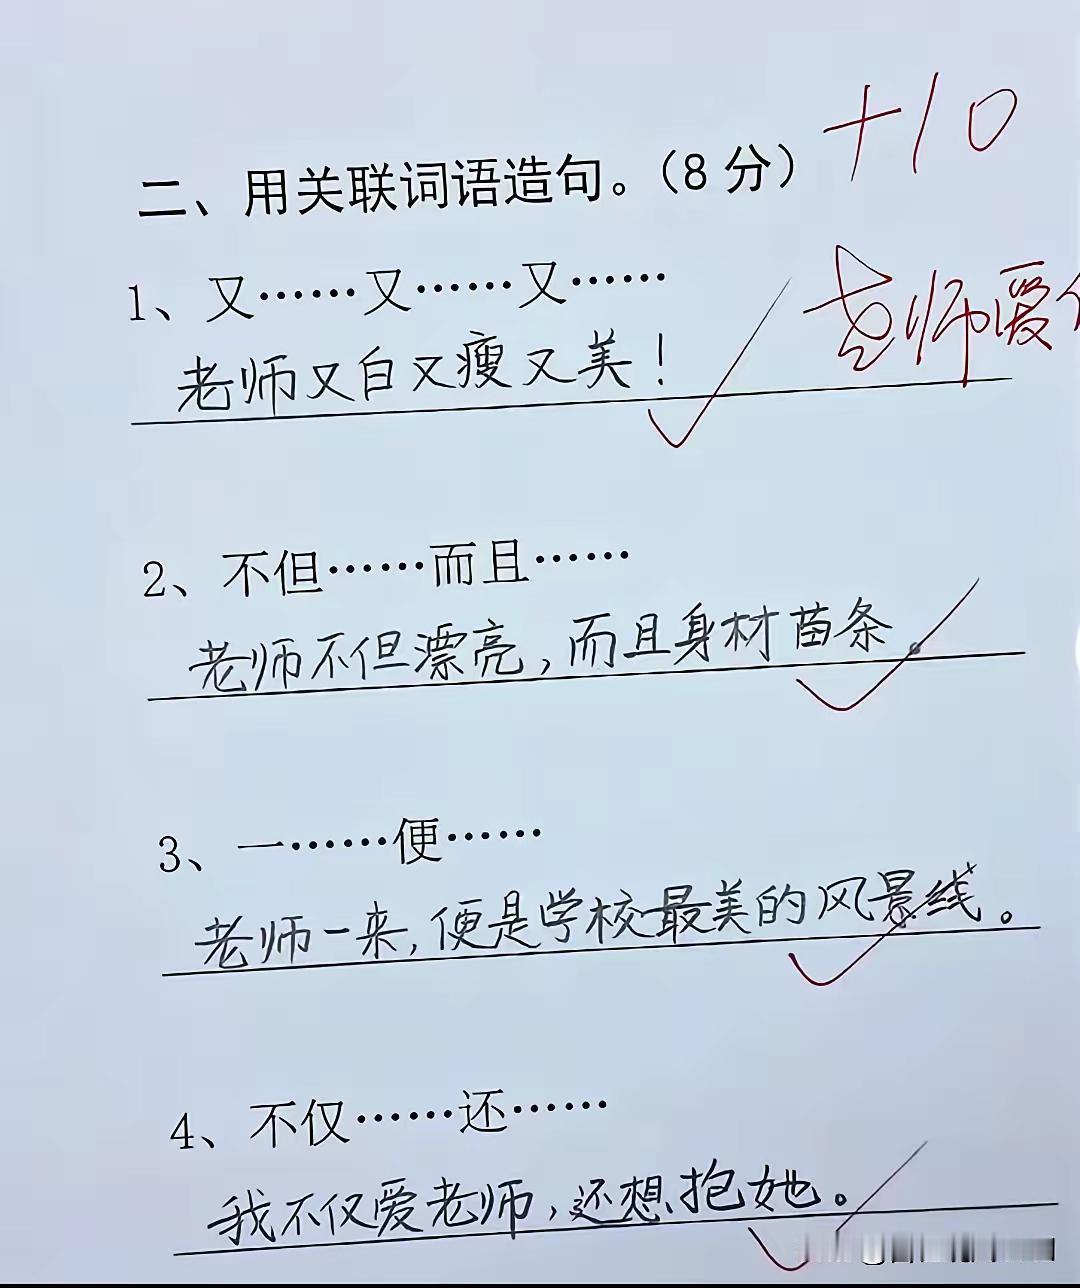 +10
二、用关联词语造句。（8分）
1、又……又……又……
老师爱
老师又白又瘦又美！
2、不但……而且……
老师不但漂亮，而且身材苗条。
3、一……便……
老师一来，便是学校最美的风景线。
4、不仅……还……
我不仅爱老师，还想抱她。